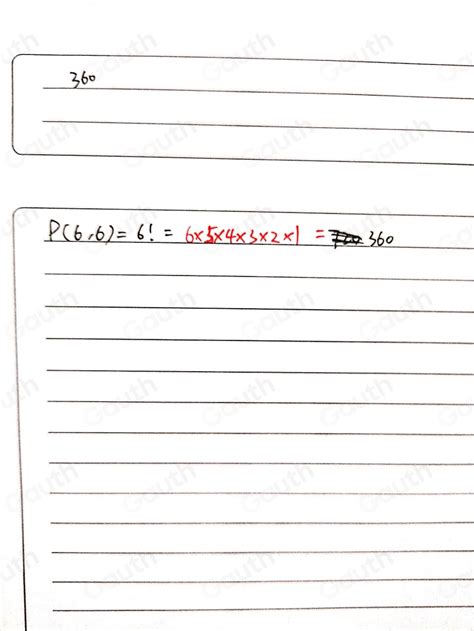 360
P(6,6)=6! = 6×5×4×3×2×1 = 360
Gauth